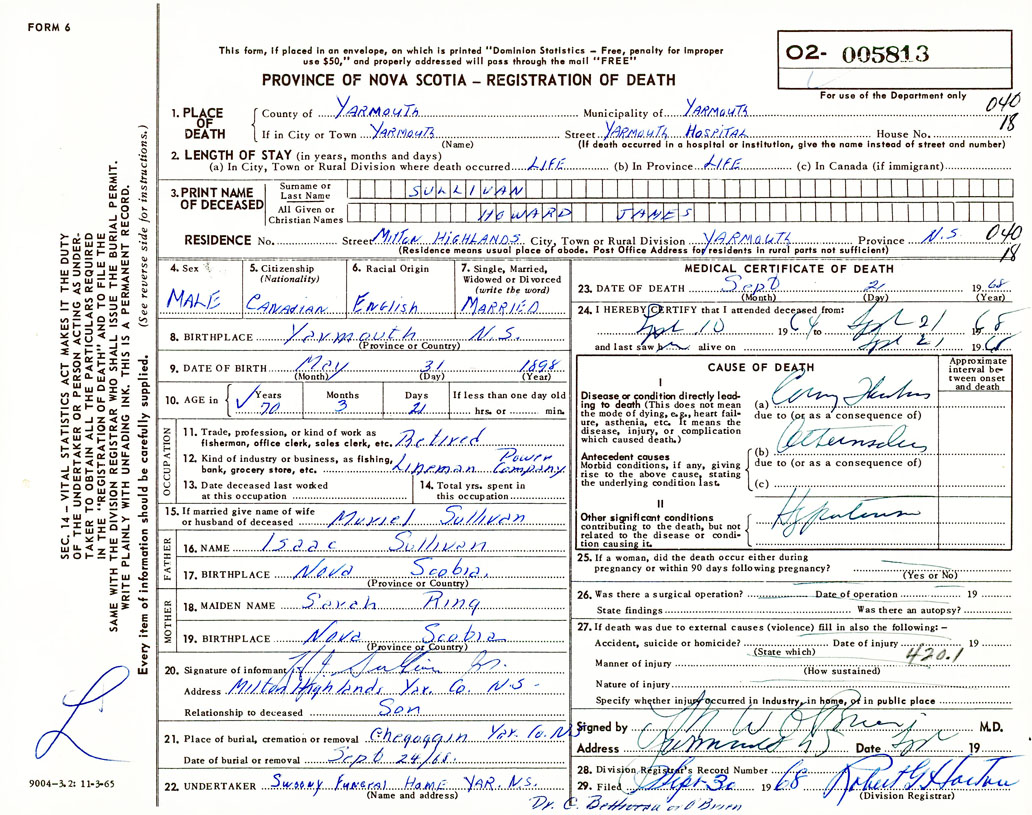 FORM 6
This form, if placed in an envelope, on which is printed "Dominion Statistics – Free, penalty for improper
use $50," and properly addressed will pass through the mail "FREE"
PROVINCE OF NOVA SCOTIA – REGISTRATION OF DEATH
02- 005813
For use of the Department only
040
18
1. PLACE OF DEATH
County of YARMOUTH Municipality of YARMOUTH
If in City or Town YARMOUTH Street YARMOUTH HOSPITAL House No.
(Name) (If death occurred in a hospital or institution, give the name instead of street and number)
2. LENGTH OF STAY (in years, months and days)
(a) In City, Town or Rural Division where death occurred LIFE (b) In Province LIFE (c) In Canada (if immigrant)
3. PRINT NAME OF DECEASED
Surname or Last Name SULLIVAN
All Given or Christian Names HOWARD JAMES
RESIDENCE No. Street MILTON HIGHLANDS City, Town or Rural Division YARMOUTH Province N.S. 040
(Residence means usual place of abode. Post Office Address for residents in rural parts not sufficient) 18
4. Sex MALE
5. Citizenship (Nationality) CANADIAN
6. Racial Origin English
7. Single, Married, Widowed or Divorced (write the word) MARRIED
8. BIRTHPLACE Yarmouth N.S.
(Province or Country)
9. DATE OF BIRTH May 31 1898
(Month) (Day) (Year)
10. AGE in Years 70 Months 3 Days 21 If less than one day old hrs. or min.
OCCUPATION
11. Trade, profession, or kind of work as fisherman, office clerk, sales clerk, etc. Retired
12. Kind of industry or business, as fishing, bank, grocery store, etc. Lineman Power Company
13. Date deceased last worked at this occupation
14. Total yrs. spent in this occupation
15. If married give name of wife or husband of deceased Muriel Sullivan
FATHER
16. NAME Isaac Sullivan
17. BIRTHPLACE Nova Scotia
(Province or Country)
MOTHER
18. MAIDEN NAME Sarah Ring
19. BIRTHPLACE Nova Scotia
(Province or Country)
20. Signature of informant H J Sullivan Jr.
Address Milton Highlands Yar. Co. N.S.
Relationship to deceased Son
21. Place of burial, cremation or removal Chegoggin Yar. Co. N.S
Date of burial or removal Sept 24/68.
22. UNDERTAKER Sweeny Funeral Home YAR. N.S.
(Name and address)
MEDICAL CERTIFICATE OF DEATH
23. DATE OF DEATH Sept 21 1968
(Month) (Day) (Year)
24. I HEREBY CERTIFY that I attended deceased from:
Sept 10 1964 to Sept 21 1968
and last saw him alive on Sept 21 1968
CAUSE OF DEATH
Approximate interval between onset and death
I
Disease or condition directly leading to death (This does not mean the mode of dying, e.g., heart failure, asthenia, etc. It means the disease, injury, or complication which caused death.)
(a)
due to (or as a consequence of)
Antecedent causes
Morbid conditions, if any, giving rise to the above cause, stating the underlying condition last.
(b)
due to (or as a consequence of)
(c)
II
Other significant conditions contributing to the death, but not related to the disease or condition causing it.
Hypertension
25. If a woman, did the death occur either during
pregnancy or within 90 days following pregnancy?
(Yes or No)
26. Was there a surgical operation? Date of operation 19
State findings Was there an autopsy?
27. If death was due to external causes (violence) fill in also the following: –
Accident, suicide or homicide? Date of injury 19
(State which) 420.1
Manner of injury
(How sustained)
Nature of injury
Specify whether injury occurred in Industry, in home, or in public place
Signed by W O'Brien M.D.
Address Yarmouth NS Date Sept 19
28. Division Registrar's Record Number
29. Filed Sept 30 1968 Robert G Horton
(Division Registrar)
Dr. C. O'Brien
SEC. 14 – VITAL STATISTICS ACT MAKES IT THE DUTY
OF THE UNDERTAKER OR PERSON ACTING AS UNDER-
TAKER TO OBTAIN ALL THE PARTICULARS REQUIRED
IN THE "REGISTRATION OF DEATH" AND TO FILE THE
SAME WITH THE DIVISION REGISTRAR WHO SHALL ISSUE THE BURIAL PERMIT.
WRITE PLAINLY WITH UNFADING INK. THIS IS A PERMANENT RECORD.
Every item of information should be carefully supplied. (See reverse side for instructions.)
9004–3.2: 11-3-65